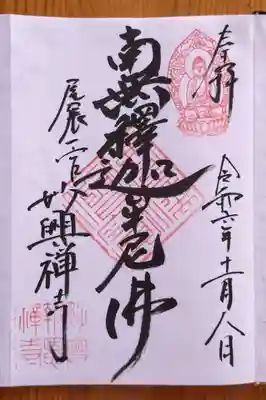 奉拝
令和六年十一月八日
南無釋迦牟尼佛
尾張一宮
妙興禪寺